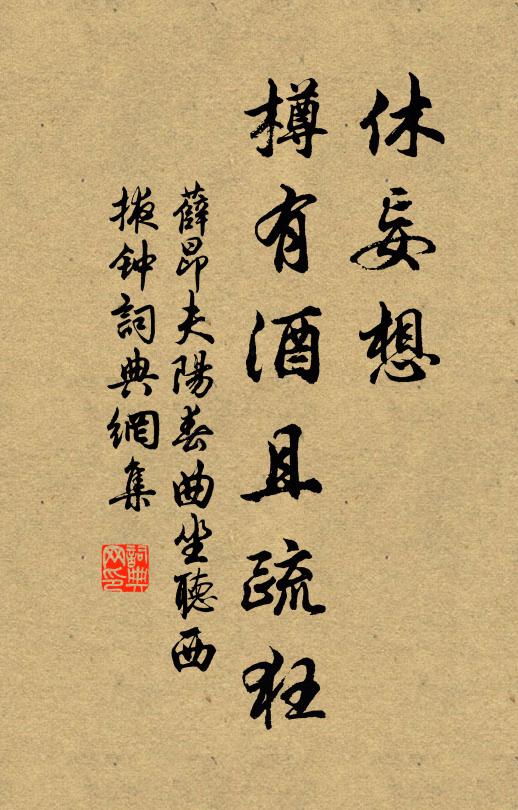 休妄想
樽有酒且疏狂
薛昂夫陽春曲坐聽西
掖鈡詞典網集
詞典
网印